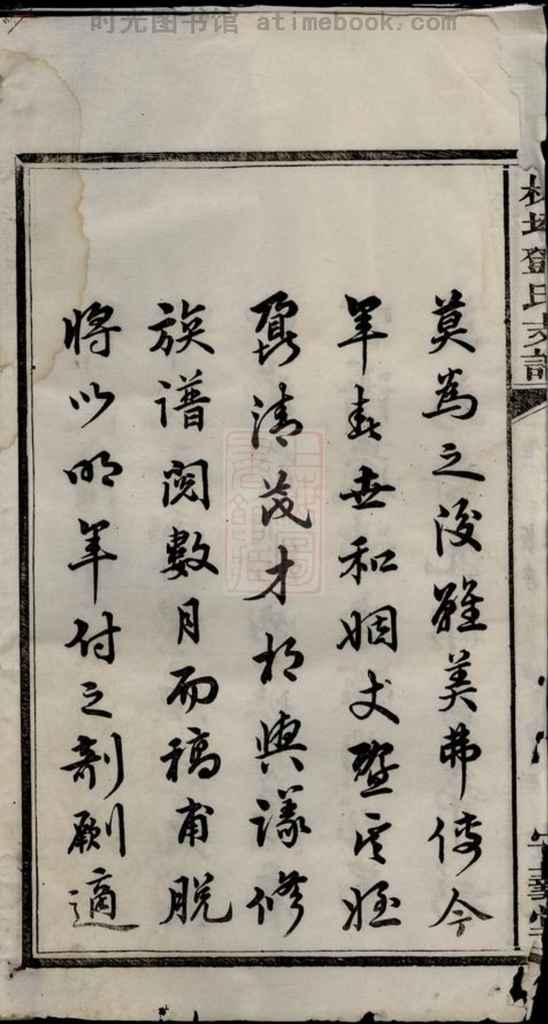 时光图书馆 atimebook.com
鄧氏支
莫為之後雖美弗傳今
年春世和姻丈暨其姪
清茂才相與議修
族譜閱數月而稿甫脫
將以明年付之剞劂適